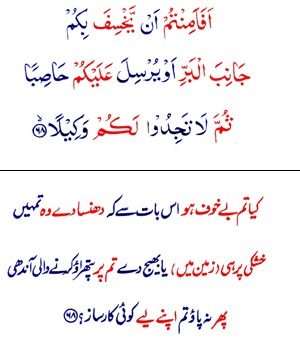 اَفَاَمِنْتُمْ اَنْ يَّخْسِفَ بِكُمْ
جَانِبَ الْبَرِّ اَوْ يُرْسِلَ عَلَيْكُمْ حَاصِبًا
ثُمَّ لَا تَجِدُوْا لَكُمْ وَكِيْلًا ۙ﴿۶۸﴾
کیا تم بے خوف ہو اس بات سے کہ دھنسا دے وہ تمہیں
خشکی پر ہی (زمین میں) یا بھیج دے تم پر پتھراؤ کرنے والی آندھی
پھر نہ پاؤ تم اپنے لیے کوئی کارساز؟ ﴿۶۸﴾